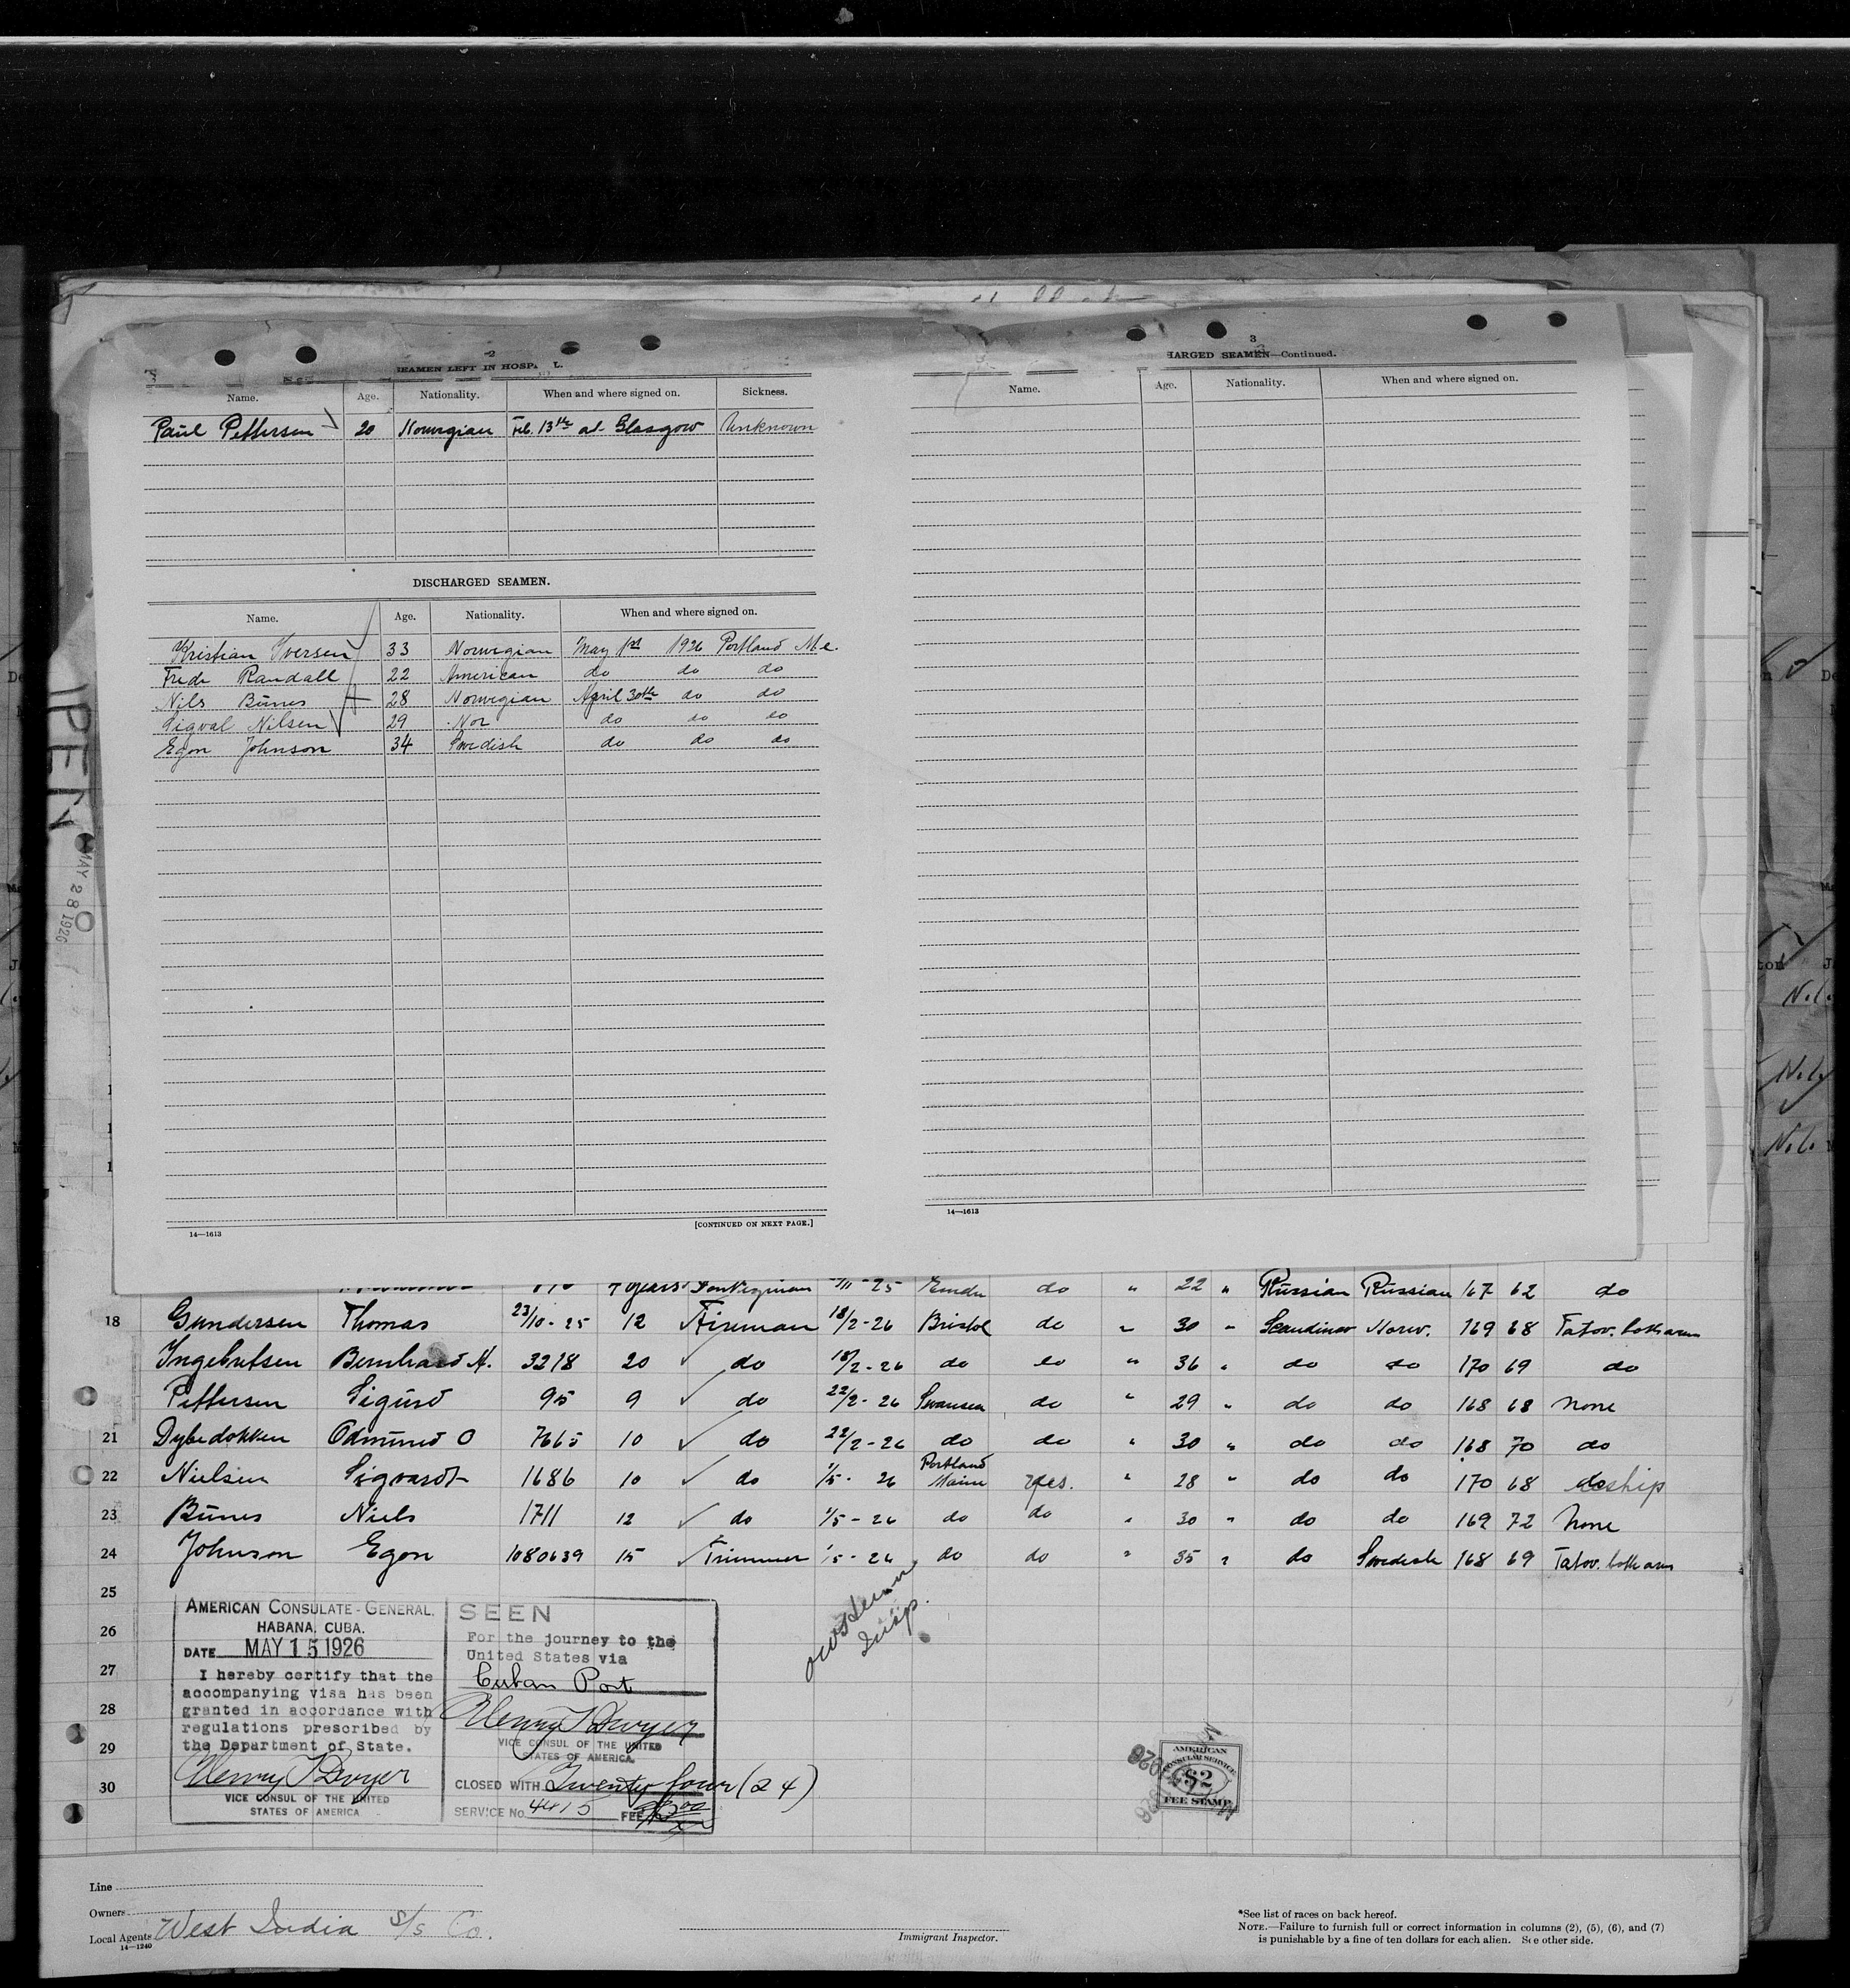 2
SEAMEN LEFT IN HOSP L.
Name. Age. Nationality. When and where signed on. Sickness.
Paul Pettersen 20 Norwegian Feb. 13th at Glasgow Unknown
DISCHARGED SEAMEN.
Name. Age. Nationality. When and where signed on.
Kristian Iversen 33 Norwegian May 1st 1926 Portland Me.
Frede Randall 22 American do do do
Nils Bünes 28 Norwegian April 30th do do
Sigval Nilsen 29 Nor do do do
Egon Johnson 34 Swedish do do do
14—1613
[CONTINUED ON NEXT PAGE.]
3
HARGED SEAMEN—Continued.
Name. Age. Nationality. When and where signed on.
14—1613
MAY 28 1926
22 " Russian Russian 167 62 do
18 Gundersen Thomas 23/10-25 12 Fireman 18/2-26 Bristol do " 30 " Scandinav Norw. 169 68 Tatov. both arm
Ingebretsen Bernhard A. 3218 20 do 18/2-26 do do " 36 " do do 170 69 do
Pettersen Sigurd 95 9 do 22/2-26 Swansea do " 29 " do do 168 68 None
21 Dybedokken Odmund O 7665 10 do 22/2-26 do do " 30 " do do 168 70 do
22 Nielsen Sigvardt 1686 10 do 1/5-26 Portland Maine yes. " 28 " do do 170 68 ship
23 Bünes Niels 1711 12 do 1/5-26 do do " 30 " do do 169 72 None
24 Johnson Egon 1080639 15 Trimmer 1/5-26 do do " 35 " do Swedish 168 69 Tatov. both arm
25
26
27
28
29
30
AMERICAN CONSULATE-GENERAL,
HABANA, CUBA.
DATE MAY 15 1926
I hereby certify that the
accompanying visa has been
granted in accordance with
regulations prescribed by
the Department of State.
Henry T Dwyer
VICE CONSUL OF THE UNITED
STATES OF AMERICA
SEEN
For the journey to the
United States via
Cuban Port
Henry T Dwyer
VICE CONSUL OF THE UNITED
STATES OF AMERICA.
CLOSED WITH Twenty four (24)
SERVICE No. 4415 FEE
Insp.
AMERICAN
CONSULAR SERVICE
$2
FEE STAMP
Line
Owners
Local Agents West India S/S Co.
14—1240
Immigrant Inspector.
*See list of races on back hereof.
NOTE.—Failure to furnish full or correct information in columns (2), (5), (6), and (7)
is punishable by a fine of ten dollars for each alien. See other side.